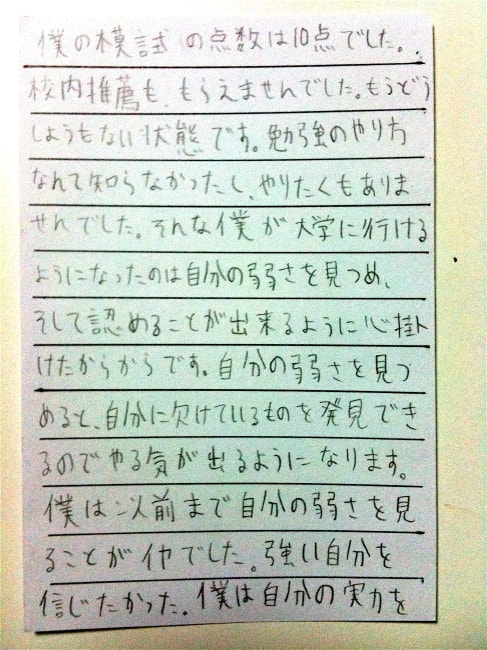 僕の模試の点数は10点でした。
校内推薦も、もらえませんでした。もうどう
しようもない状態です。勉強のやり方
なんて知らなかったし、やりたくもありま
せんでした。そんな僕が大学に行ける
ようになったのは自分の弱さを見つめ、
そして認めることが出来るように心掛
けたからからです。自分の弱さを見つ
めると、自分に欠けているものを発見でき
るのでやる気が出るようになります。
僕は以前まで自分の弱さを見
ることがイヤでした。強い自分を
信じたかった。僕は自分の実力を